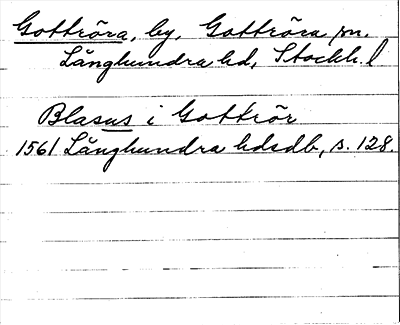 Gottröra, by, Gottröra sn.
Långhundra hd, Stockh. l
Blasus i Gottrör
1561 Långhundra hdsdb, s. 128.